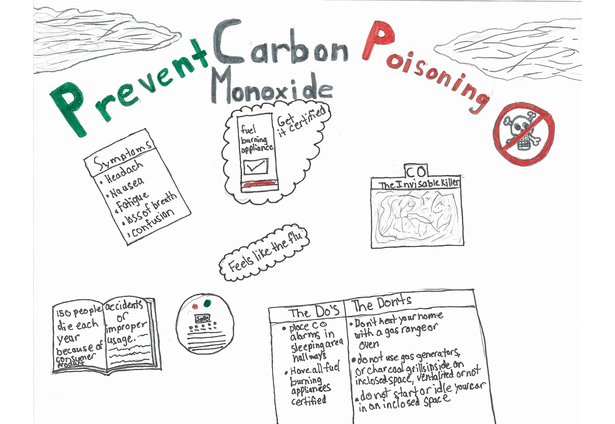 Prevent Carbon Monoxide Poisoning
Symptoms
• Headach
• Nausea
• Fatigue
• loss of breath
• confusion
fuel
burning
appliance
Get
it certified
CO
The Invisable Killer
Feels like the flu
150 people
die each
year
because of
consumer
product
accidents
or
improper
usage.
Safe
The Do's
• place CO
alarms in
sleeping area
hallways
• Have all fuel
burning
appliances
certified
The Donts
• Don't heat your home
with a gas range or
oven
• do not use gas generators,
or charcoal grills inside an
inclosed space, ventalited or not
• do not start or idle your car
in an inclosed space